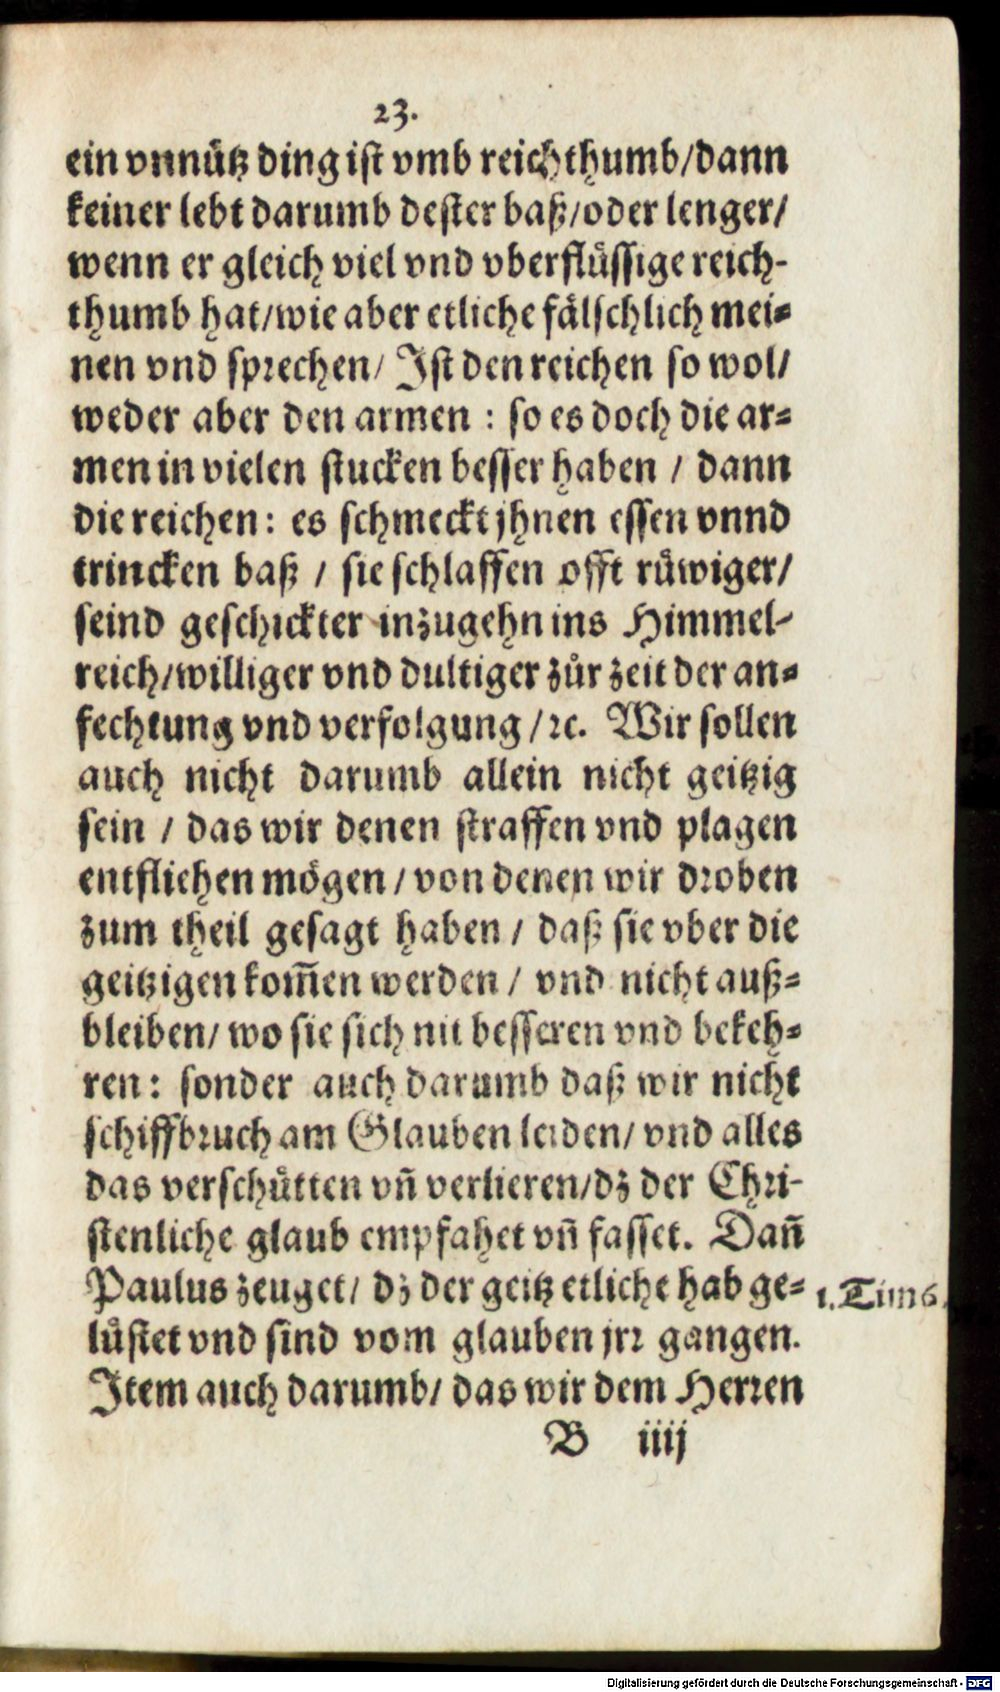 23.
ein vnnütz ding ist vmb reichthumb/dann
keiner lebt darumb dester baß/oder lenger/
wenn er gleich viel vnd vberflüssige reich-
thumb hat/wie aber etliche fälschlich mei-
nen vnd sprechen/ Ist den reichen so wol/
weder aber den armen : so es doch die ar-
men in vielen stucken besser haben / dann
die reichen: es schmeckt jhnen essen vnnd
trincken baß / sie schlaffen offt rüwiger/
seind geschickter inzugehn ins Himmel-
reich/williger vnd dultiger zůr zeit der an-
fechtung vnd verfolgung /ꝛc. Wir sollen
auch nicht darumb allein nicht geitzig
sein / das wir denen straffen vnd plagen
entfliehen mögen / von denen wir droben
zum theil gesagt haben / daß sie vber die
geitzigen kom̃en werden / vnd nicht auß-
bleiben/ wo sie sich nit besseren vnd bekeh-
ren: sonder auch darumb daß wir nicht
schiffbruch am Glauben leiden/ vnd alles
das verschütten vñ verlieren/dz der Chri-
stenliche glaub empfahet vñ fasset. Dañ
Paulus zeuget/ dz der geitz etliche hab ge- 1. Tim 6.
lüstet vnd sind vom glauben jrr gangen.
Item auch darumb/ das wir dem Herren
B iiij
Digitalisierung gefördert durch die Deutsche Forschungsgemeinschaft - DFG